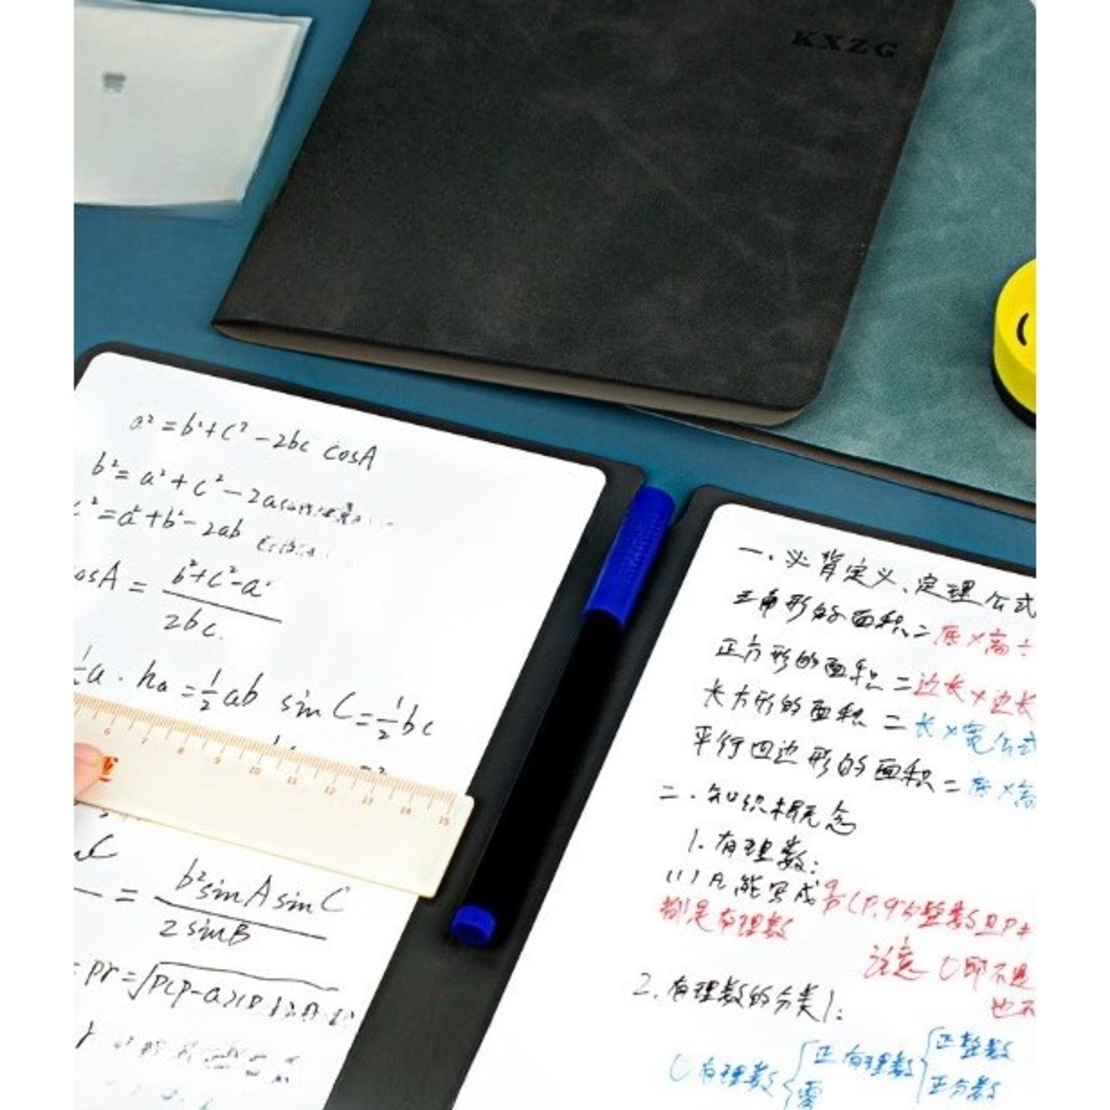 KXZG
a² = b² + c² - 2bc cosA
b² = a² + c² - 2a
c² = a² + b² - 2ab
osA = b² + c² - a² / 2bc.
½a · ha = ½ab sin C = ½bc
6 7 8 9 10 11 12 13 14 15
= b²sinA sinC / 2 sinB
= pr = √p(p-a)
一.必背定义、定理公式
三角形的面积=底×高÷
正方形的面积=边长×边长
长方形的面积=长×宽公式
平行四边形的面积=底×高
二.知识概念
1.有理数:
(1)凡能写成 (P.q为整数且P≠
都是有理数
注意 0即不是
也不
2.有理数的分类1:
有理数 正有理数 正整数
零 正分数